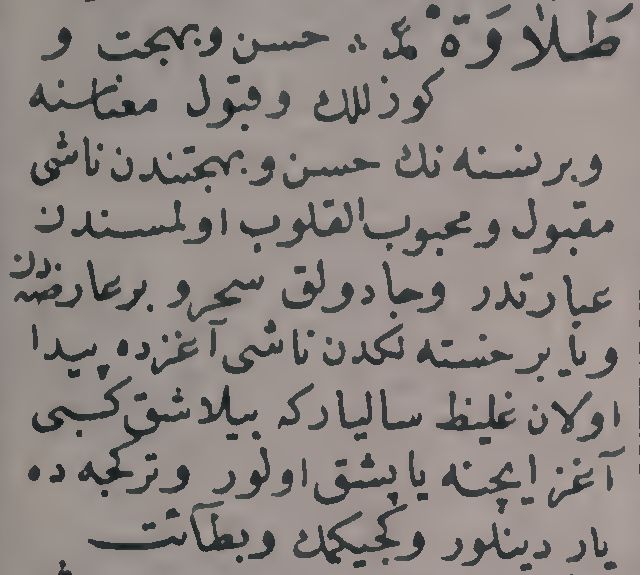 طلاوة ع‍ ∴ حسن وبهجت و
كوزللك وقبول معناسنه
وبر نسنه نك حسن وبهجتندن ناشى
مقبول ومحبوب القلوب اولمسندن
عبارتدر وجادولق سحر و بر عارضه دن
ويا بر خسته لكدن ناشى آغزده پيدا
اولان غليظ ساليارکه بيلاشق كبى
آغز ايچنه ياپشق اولور وتركجه ده
يار دينلور وكجيكمك وبطائت